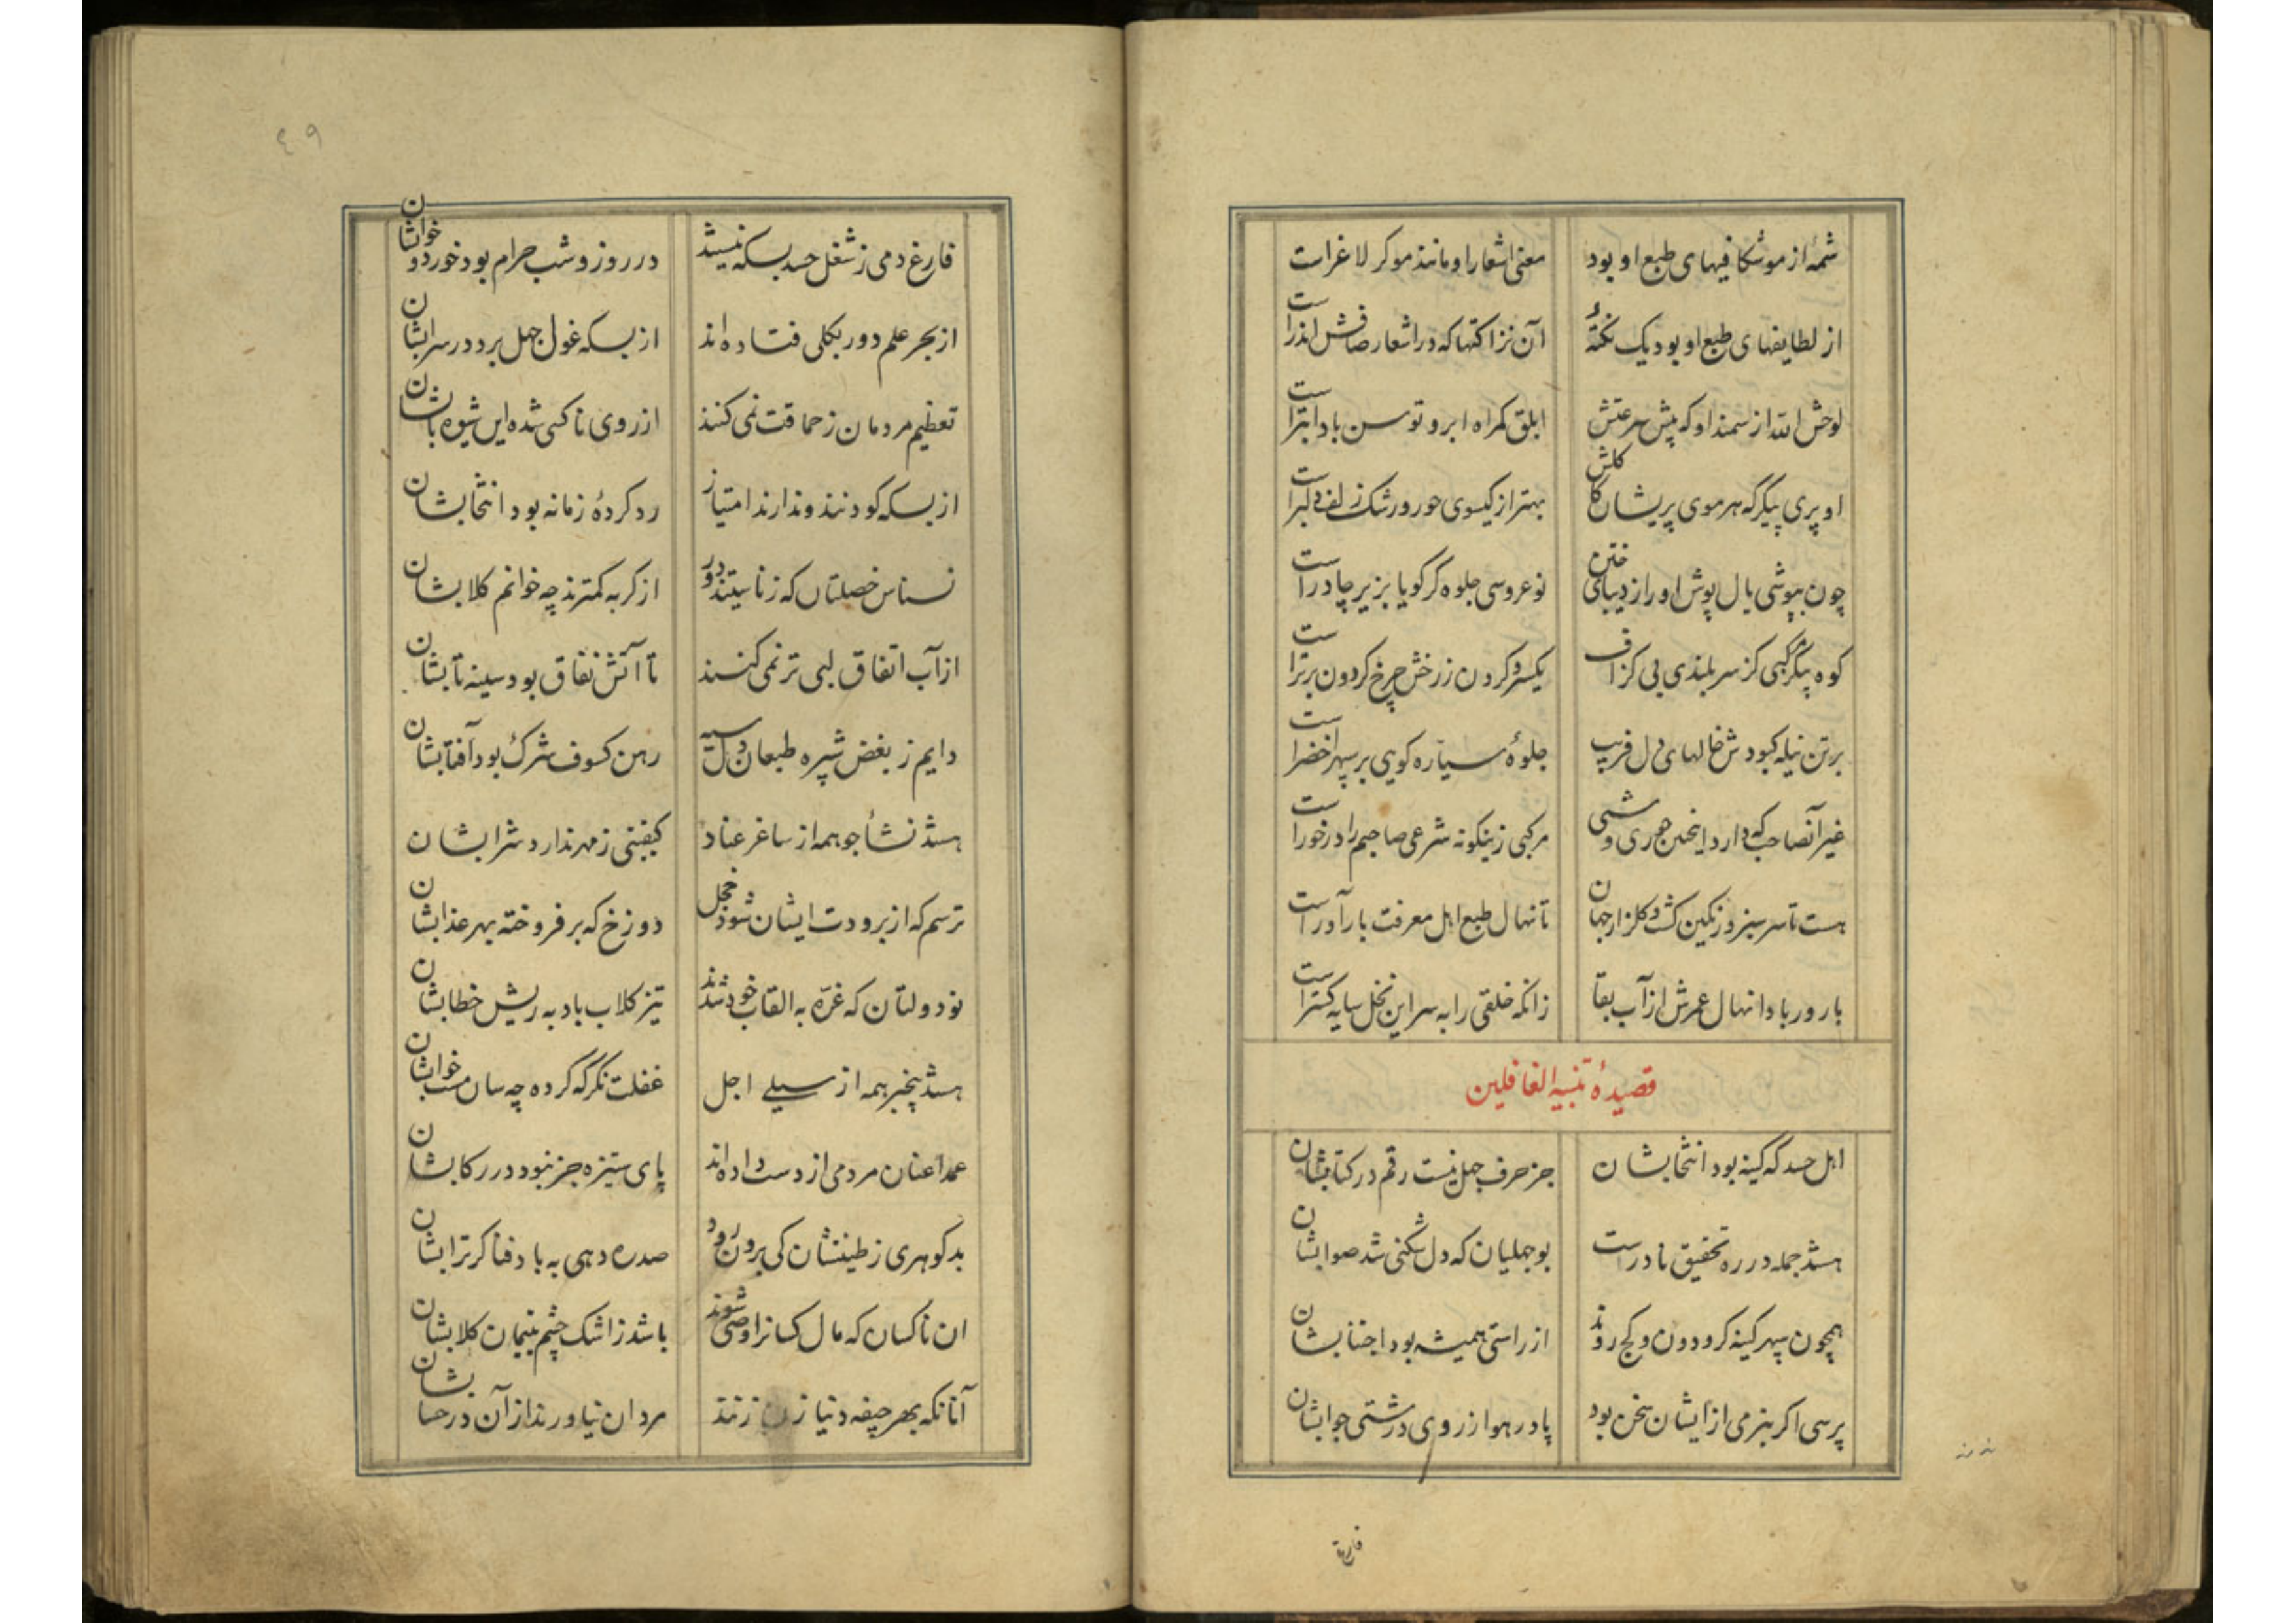 شمهٔ از موشکافیهای طبع او بود
معنی اشعار او مانند مو کر لاغر است
از لطایفهای طبع او بود یک نکتهٔ
آن نزاکتها که در اشعار صافش اندر است
لوحش الله از سمند او که پیش سرعتش
ابلق کمراه ابر و توسن باد ابتر است
او پری پیکر که هر موی پریشان کاکلش
بهتر از کیسوی حور و رشک زلف دلبر است
چون بپوشی یال پوش او را از دیبای ختن
نو عروسی جلوه کر کویا بزیر چادر است
کوه پیکر مرکبی کز سربلندی بی کزاف
یکسر و کردن ز رخش چرخ کردون برتر است
بر تن نیله کبودش خالهای دل فریب
جلوهٔ سیاره کویی بر سپهر اخضر است
غیر آنصاحب که دارد اینچنین حوری وشی
مرکبی زینکونه شرعی صاحبم را در خور است
هست تا سرسبز و رنکین کشت و کلزار جهان
تا نهال طبع اهل معرفت بارآور است
بارور بادا نهال عمرش از آب بقا
زانکه خلقی را به سر این نخل سایه کستر است
قصیدهٔ تنبیه الغافلین
اهل حسد که کینه بود انتخابشان
جز حرف جهل نیست رقم در کتابشان
هستند جمله در ره تحقیق نادرست
بوجهلیان که دل شکنی شد صوابشان
همچون سپهر کینه کر و دون و کج روند
از راستی همیشه بود اجتنابشان
پرسی اکر بنرمی از ایشان سخن بود
پا در هوا ز روی درشتی جوابشان
٤٩
فارغ دمی ز شغل حسد بسکه نیستند
در روز و شب حرام بود خورد و خوابشان
از بحر علم دور بکلی فتاده اند
از بسکه غول جهل برد در سرابشان
تعظیم مردمان ز حماقت نمی کنند
از روی ناکسی شده این شیوه بابشان
از بسکه کودنند و ندارند امتیاز
رد کردهٔ زمانه بود انتخابشان
نسناس خصلتان که ز ناستند دور
از کربه کمترند چه خوانم کلابشان
از آب اتفاق لبی تر نمی کنند
تا آتش نفاق بود سینه تابشان
دایم ز بغض شپره طبعان دل سیه
رهن کسوف شرک بود آفتابشان
هستند نشأ جو همه از ساغر عناد
کیفیتی ز مهر ندارد شرابشان
ترسم که از برودت ایشان شود خجل
دوزخ که برفروخته بهر عذابشان
نو دولتان که غرّه به القاب خود شدند
تیز کلاب باد به ریش خطابشان
هستند بیخبر همه از سیلی اجل
غفلت نکر که کرده چه سان مست خوابشان
عمدا عنان مردمی از دست داده اند
پای ستیزه جز نبود در رکابشان
بدکوهری ز طینتشان کی برون رود
صدره دهی به باد فنا کر ترابشان
ان ناکسان که مال کسانرا وصی شوند
باشد ز اشک چشم یتیمان کلابشان
آنانکه بهر جیفه دنیا زنند
مردان نیاورند از آن در حسابشان